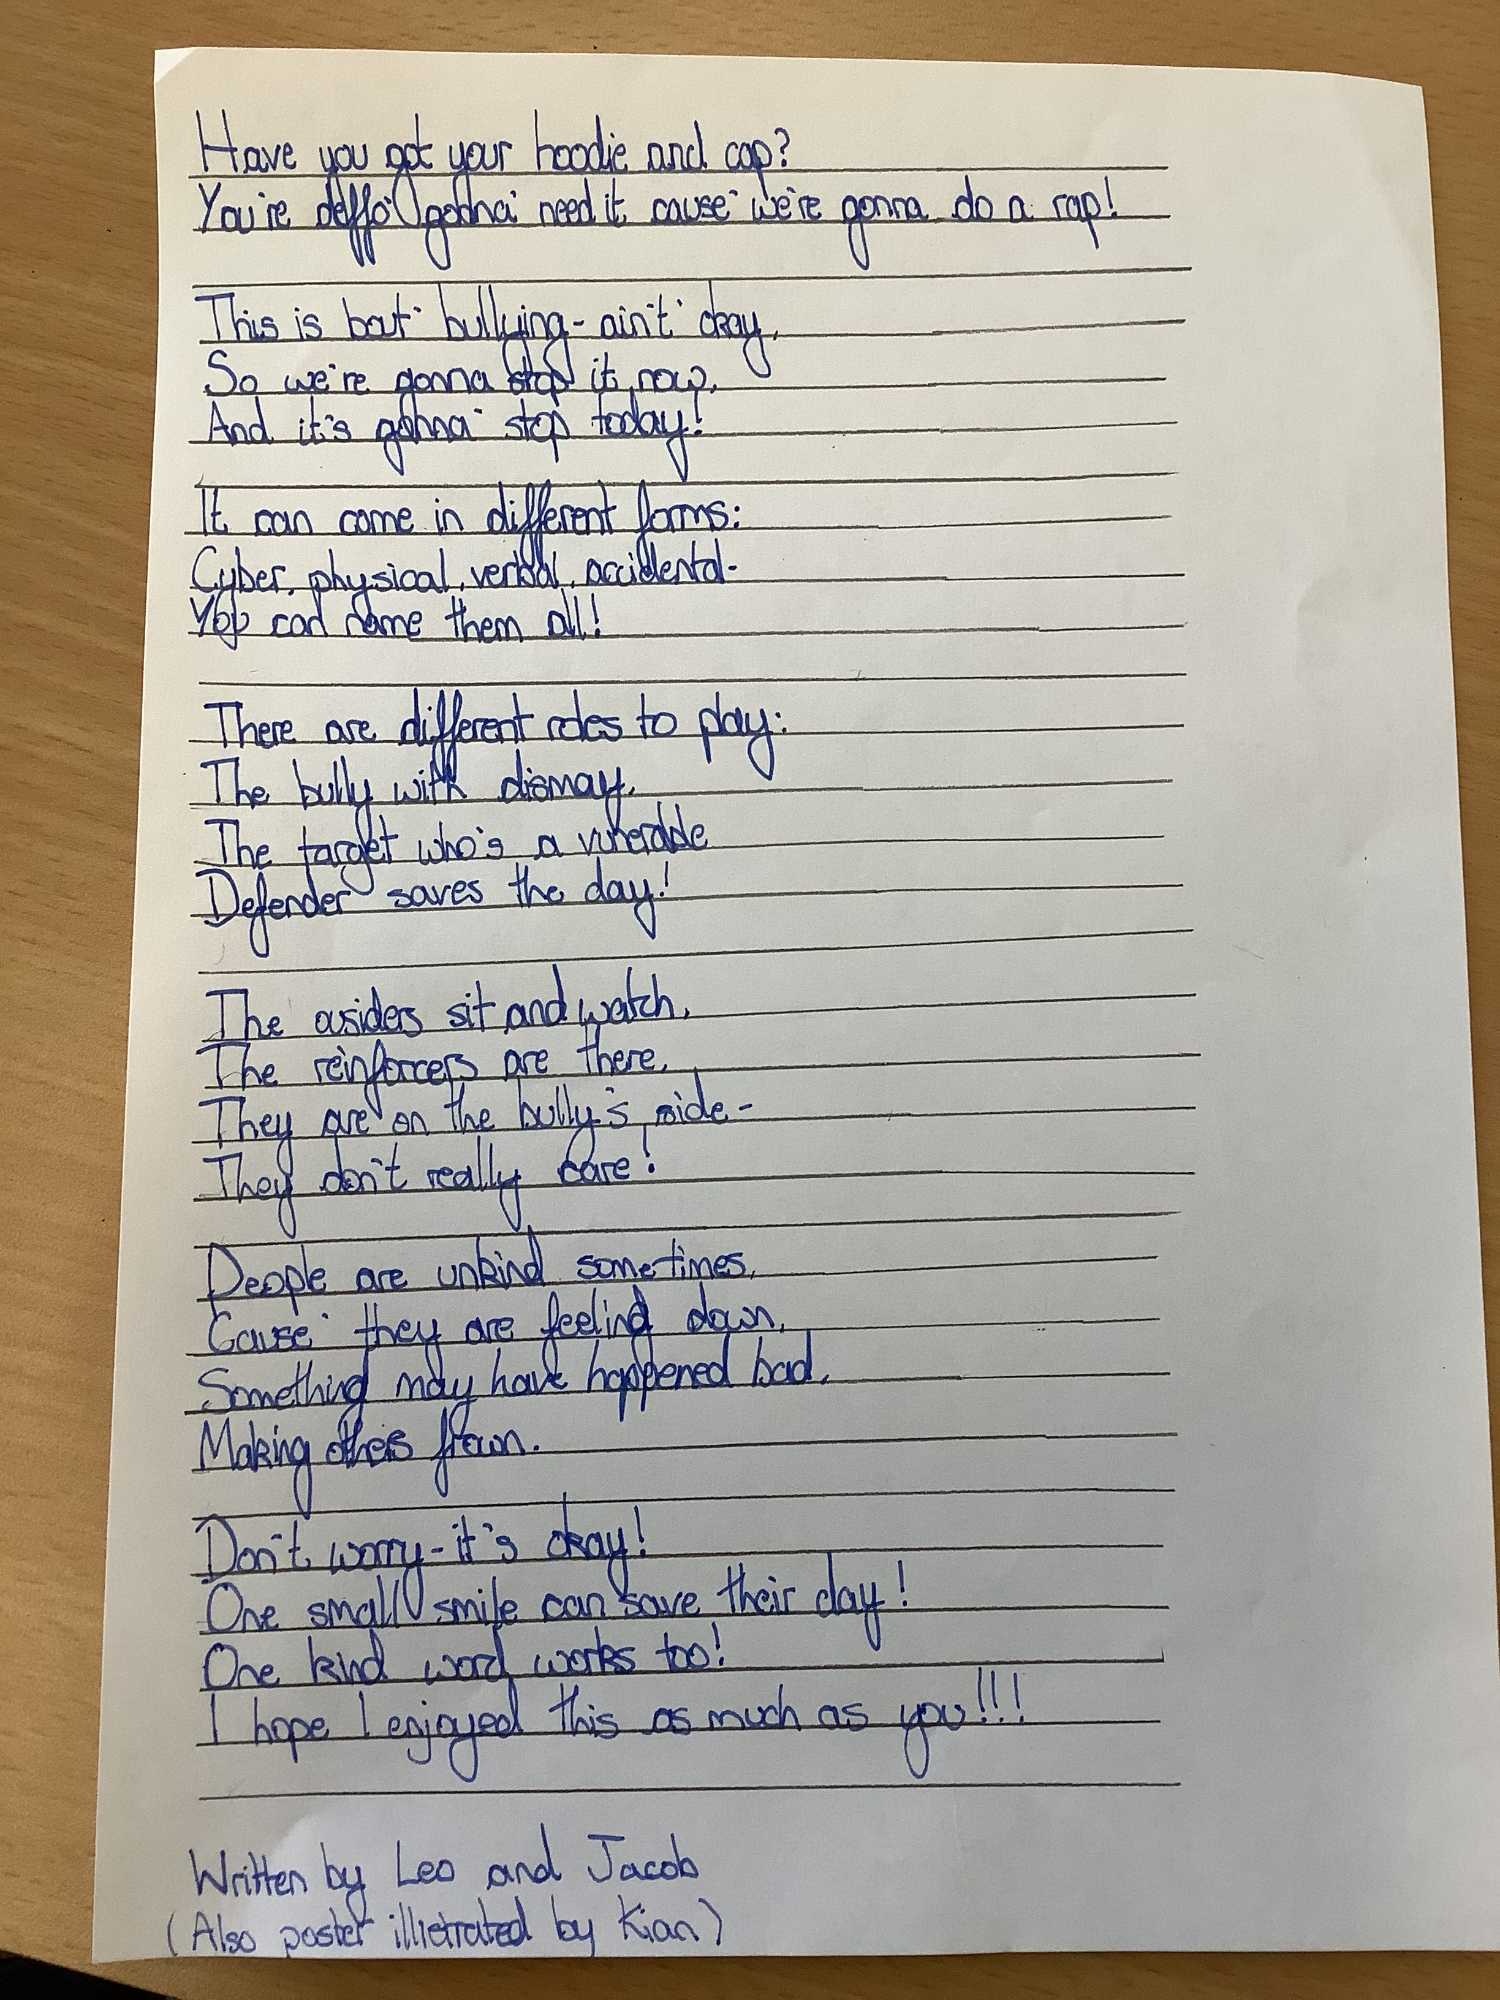 Have you got your hoodie and cap?
You're deffo' gonna' need it cause' we're gonna do a rap!
This is bout' bullying - ain't' okay,
So we're gonna stop it now,
And it's gonna' stop today!
It can come in different forms:
Cyber, physical, verbal, accidental-
You can name them all!
There are different roles to play:
The bully with dismay,
The target who's a vulnerable
Defender saves the day!
The asiders sit and watch,
The reinforcers are there,
They are on the bully's side-
They don't really care!
People are unkind sometimes,
Cause' they are feeling down,
Something may have happened bad,
Making others frown.
Don't worry - it's okay!
One small smile can save their day!
One kind word works too!
I hope I enjoyed this as much as you!!!
Written by Leo and Jacob
(Also poster illistrated by Kian)